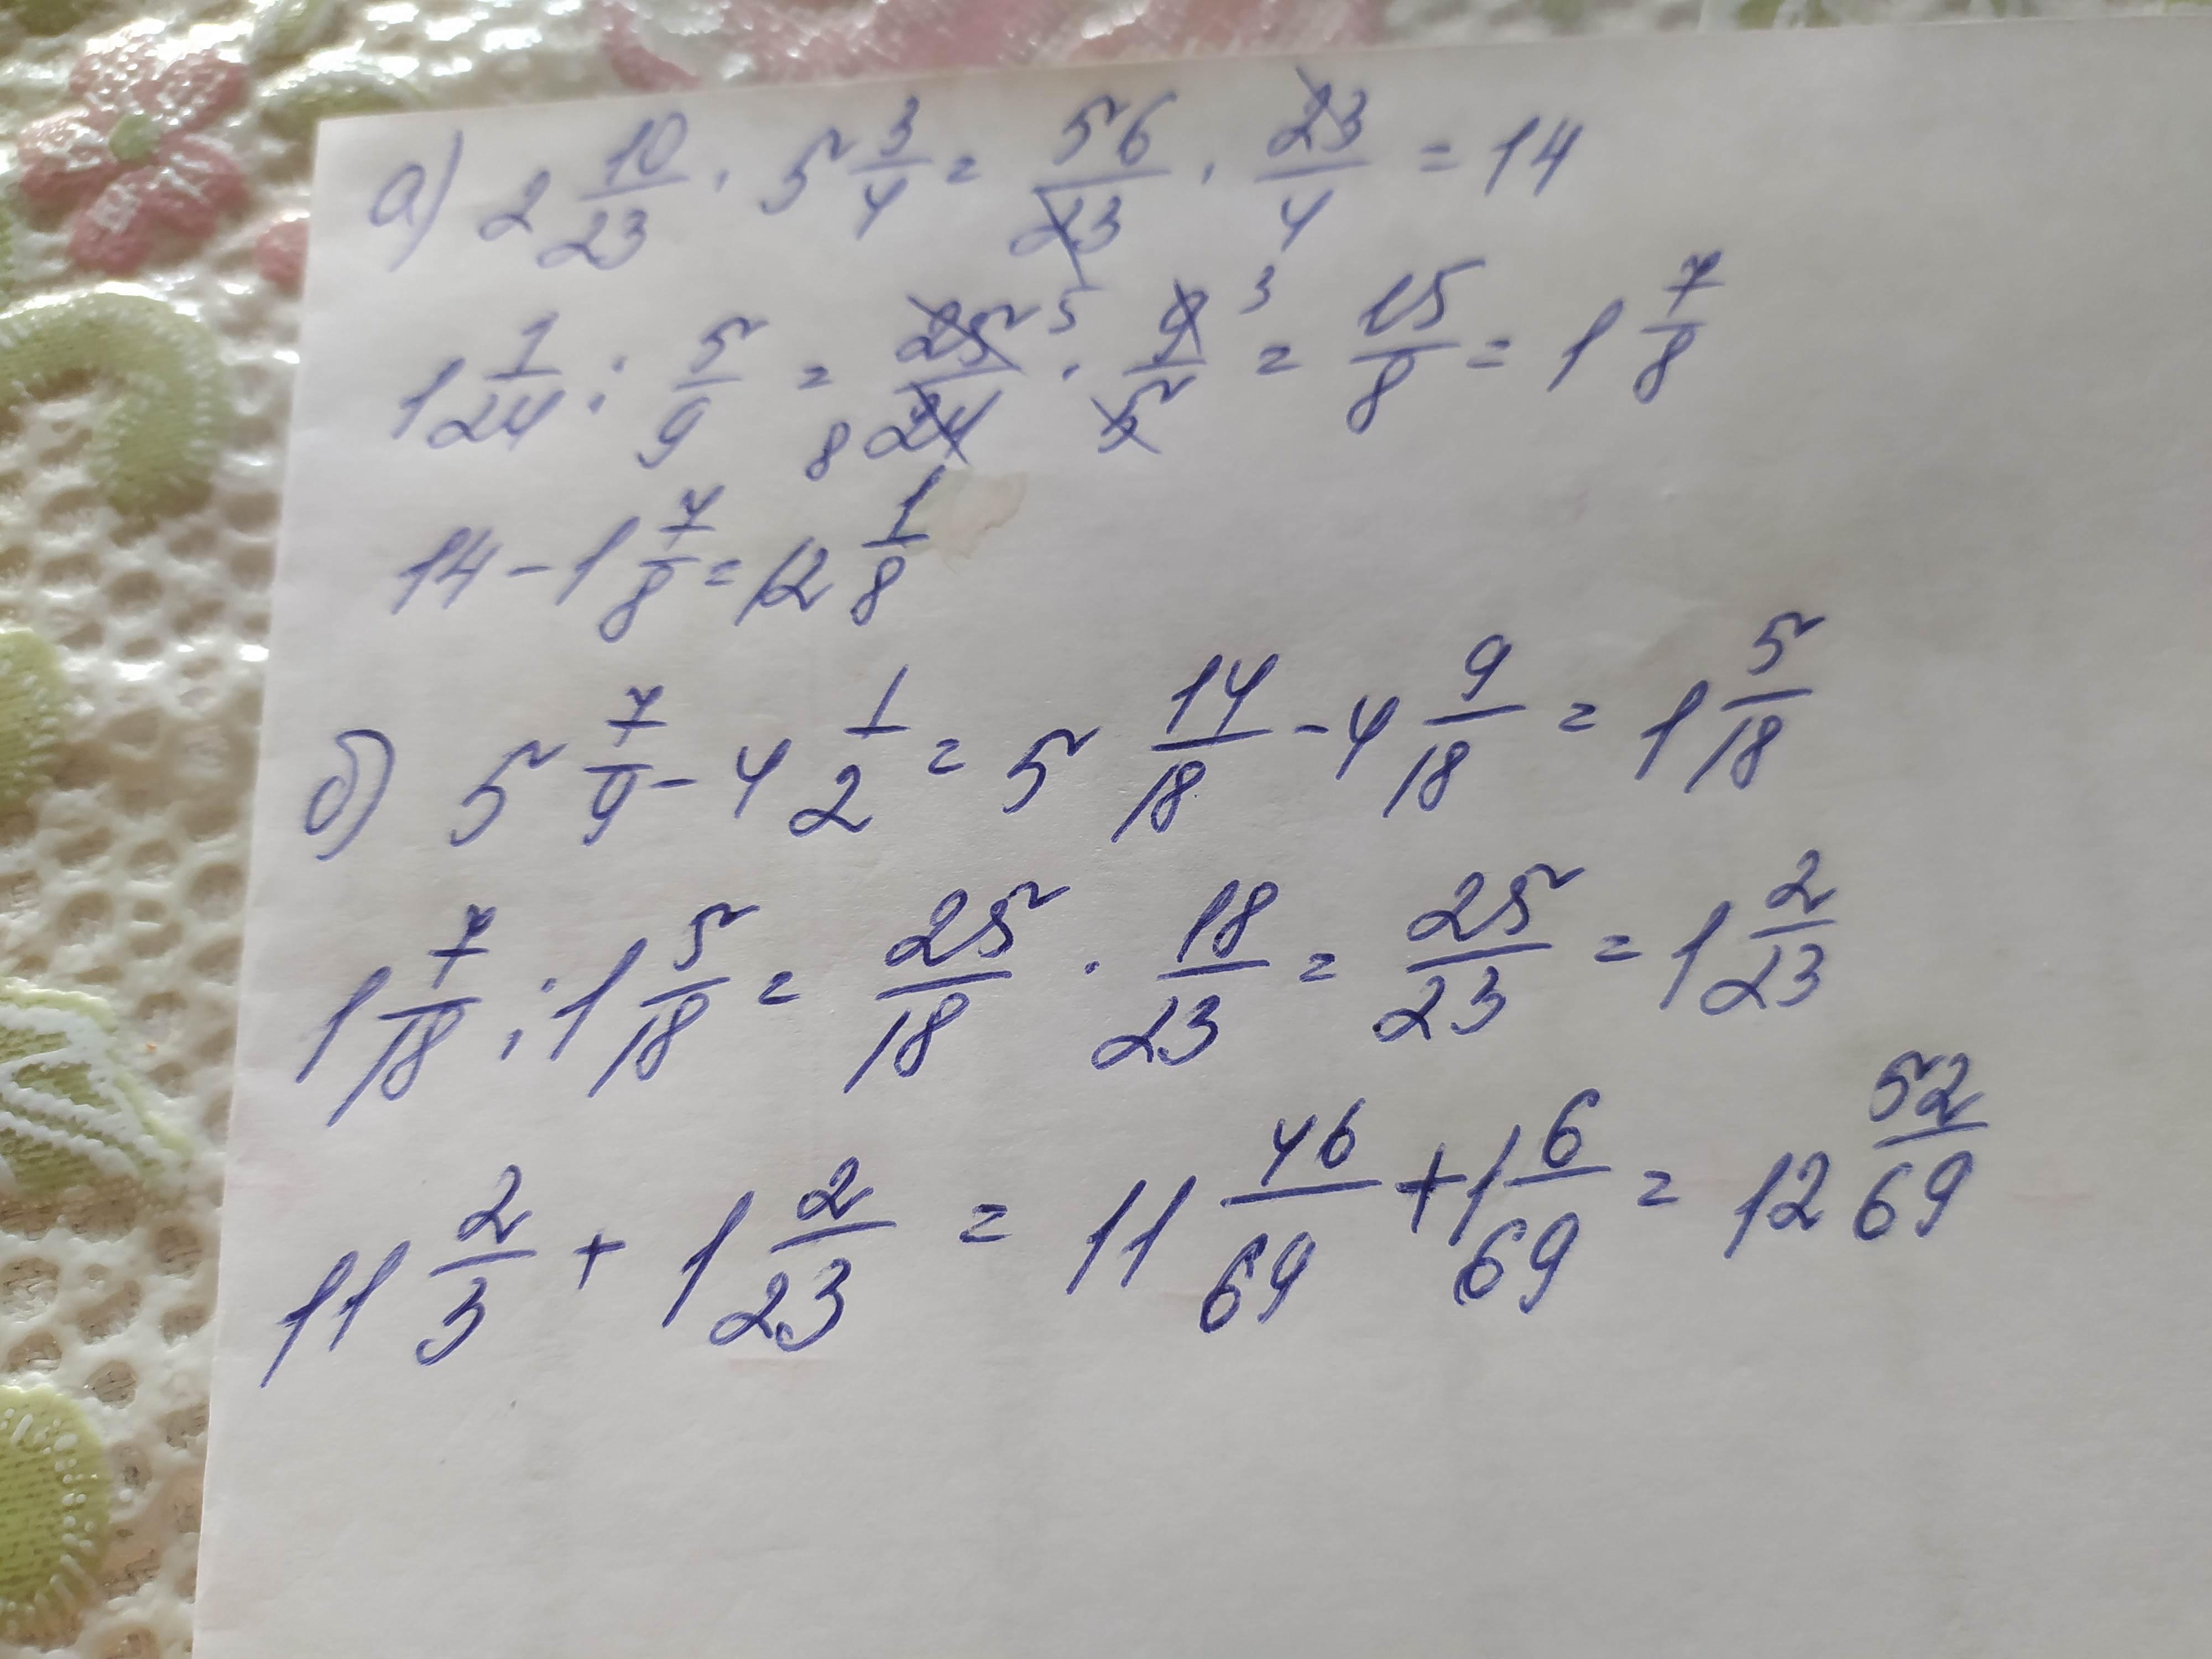 а) 2 10/23 · 5 3/4 = 56/23 · 23/4 = 14
1 1/24 : 5/9 = 25 5/8 24 · 9 3/5 = 15/8 = 1 7/8
14 - 1 7/8 = 12 1/8
б) 5 7/9 - 4 1/2 = 5 14/18 - 4 9/18 = 1 5/18
1 7/18 : 1 5/18 = 25/18 · 18/23 = 25/23 = 1 2/23
11 2/3 + 1 2/23 = 11 46/69 + 1 6/69 = 12 52/69